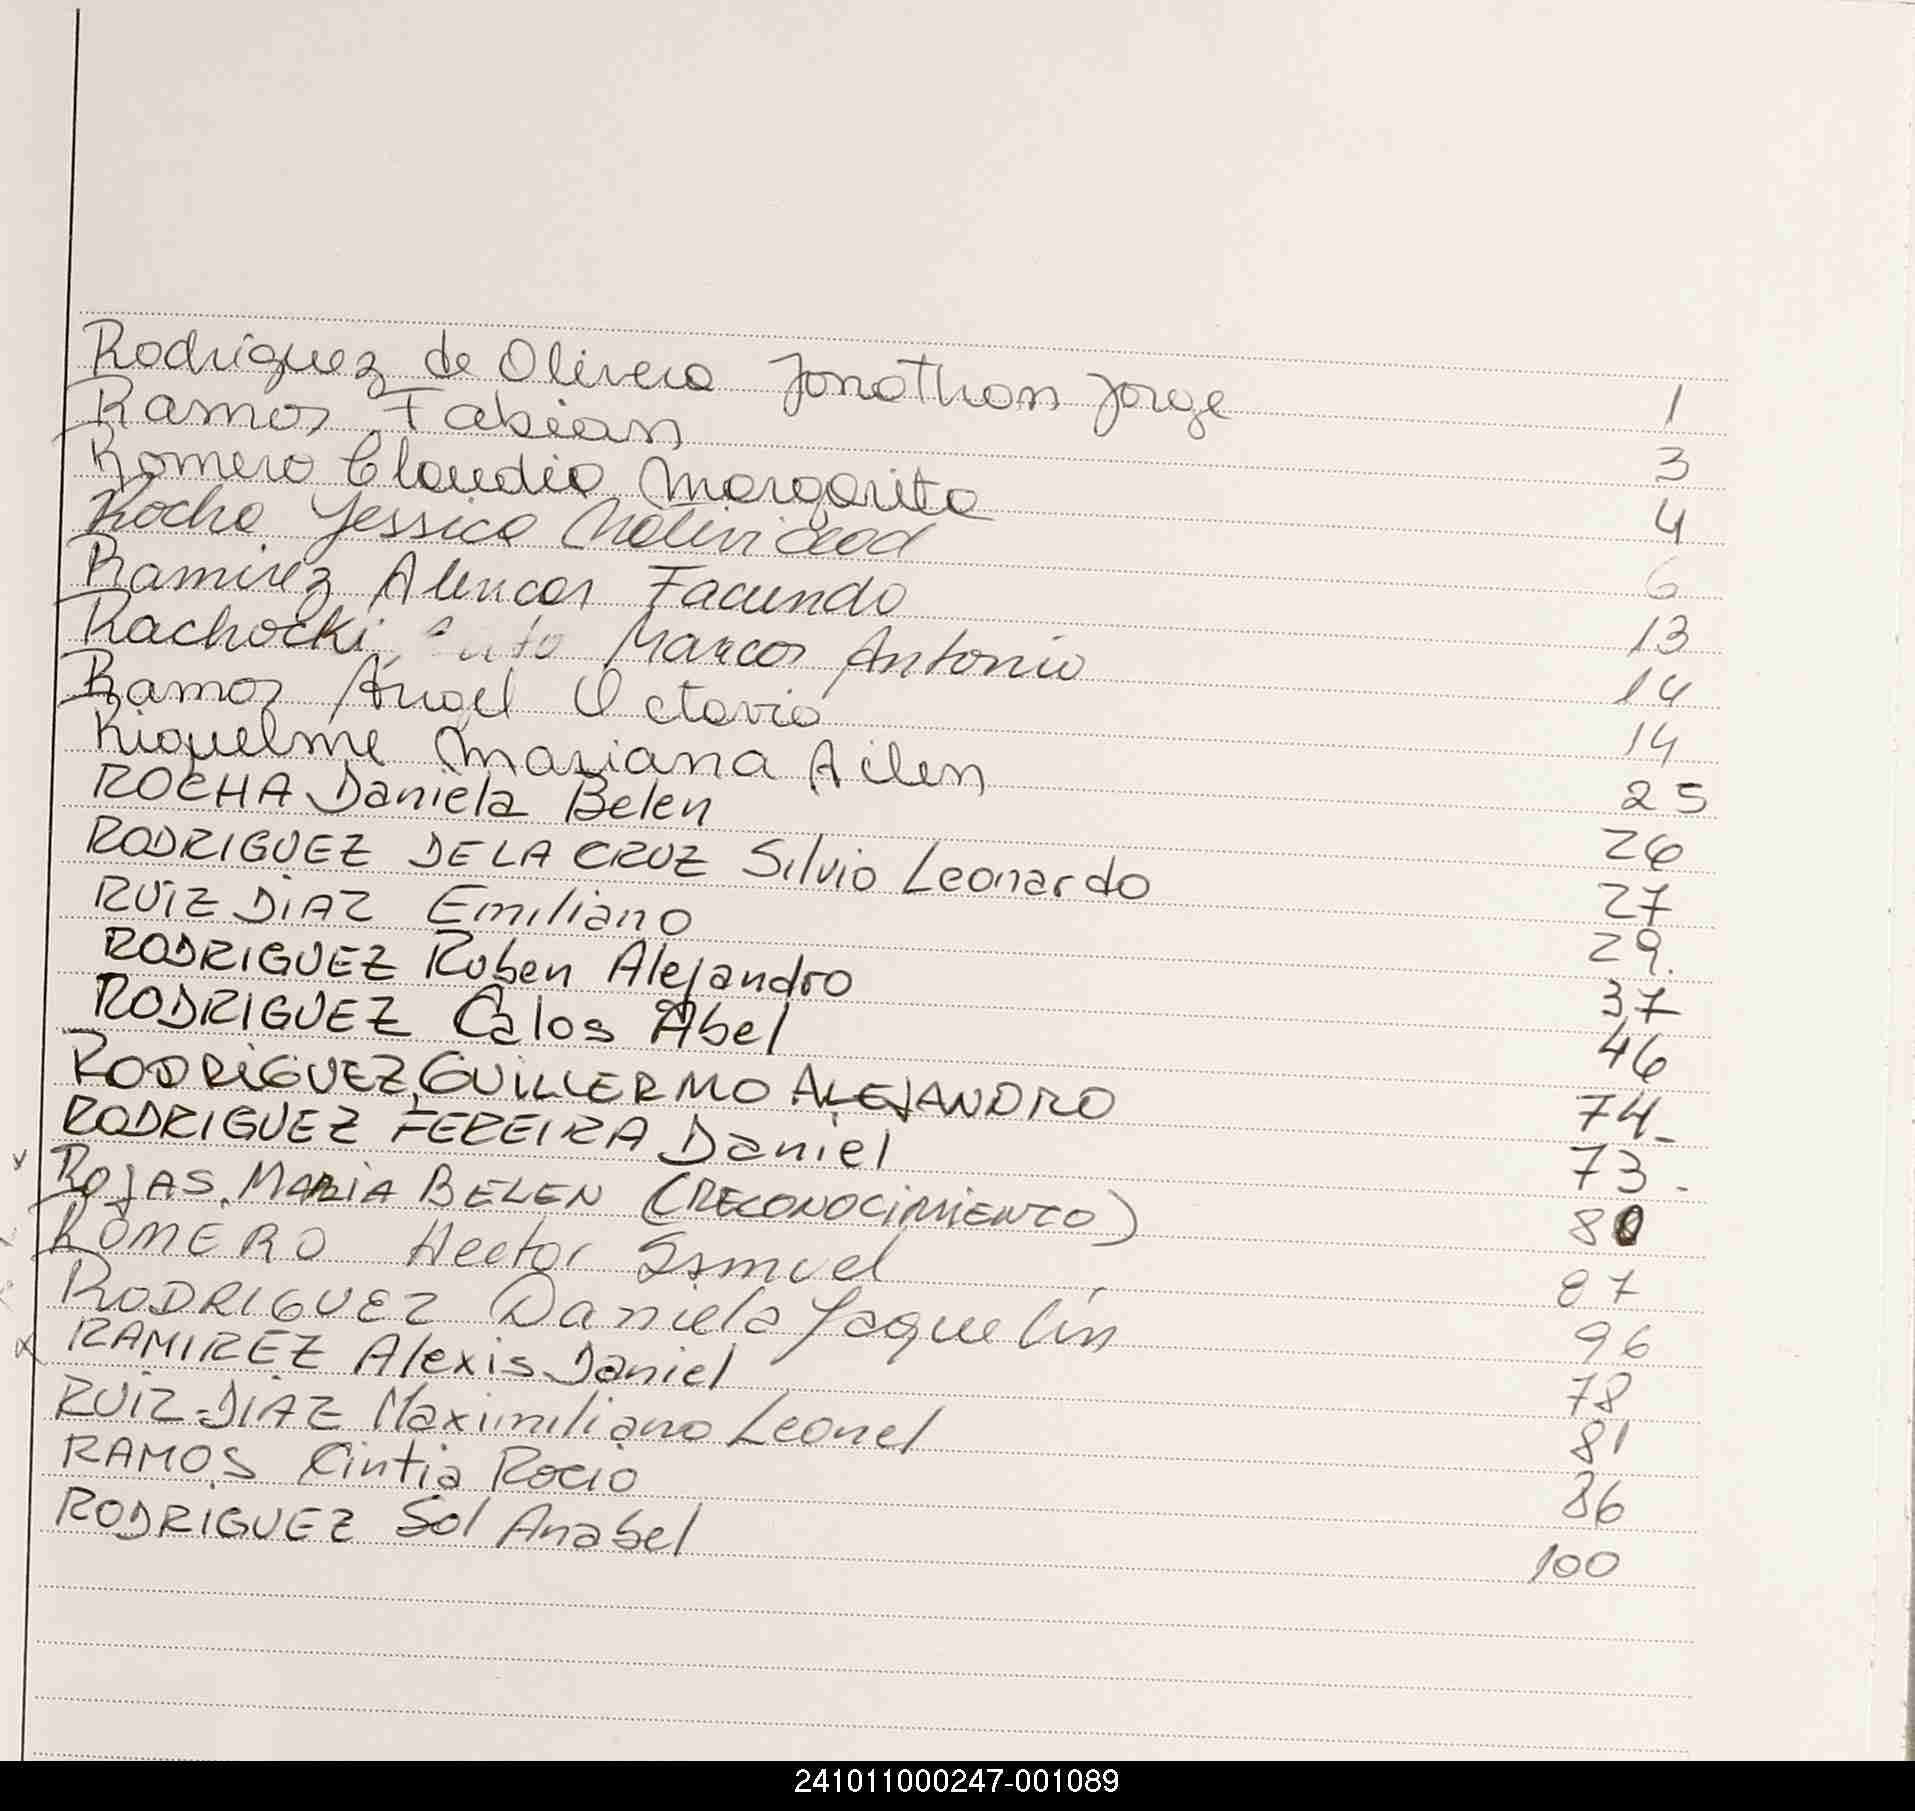 Rodriguez de Olivera Jonathan Jorge 1
Ramos Fabian 3
Romero Claudia Margarita 4
Rocha Yessica Natividad 6
Ramirez Alencar Facundo 13
Rachocki Marcos Antonio 14
Ramos Angel Octavio 14
Riquelme Mariana Ailen 25
ROCHA Daniela Belen 26
RODRIGUEZ DE LA CRUZ Silvio Leonardo 27
RUIZ DIAZ Emiliano 29.
RODRIGUEZ Ruben Alejandro 37
RODRIGUEZ Calos Abel 46
RODRIGUEZ, GUILLERMO ALEJANDRO 74-
RODRIGUEZ FEREIRA Daniel 73-
ROJAS, MARIA BELEN (RECONOCIMIENTO) 80
ROMERO Hector Ismael 87
RODRIGUEZ Daniela Jaquelín 96
RAMIREZ Alexis Daniel 78
RUIZ-DIAZ Maximiliano Leonel 81
RAMOS Cintia Rocio 86
RODRIGUEZ Sol Anabel 100
241011000247-001089